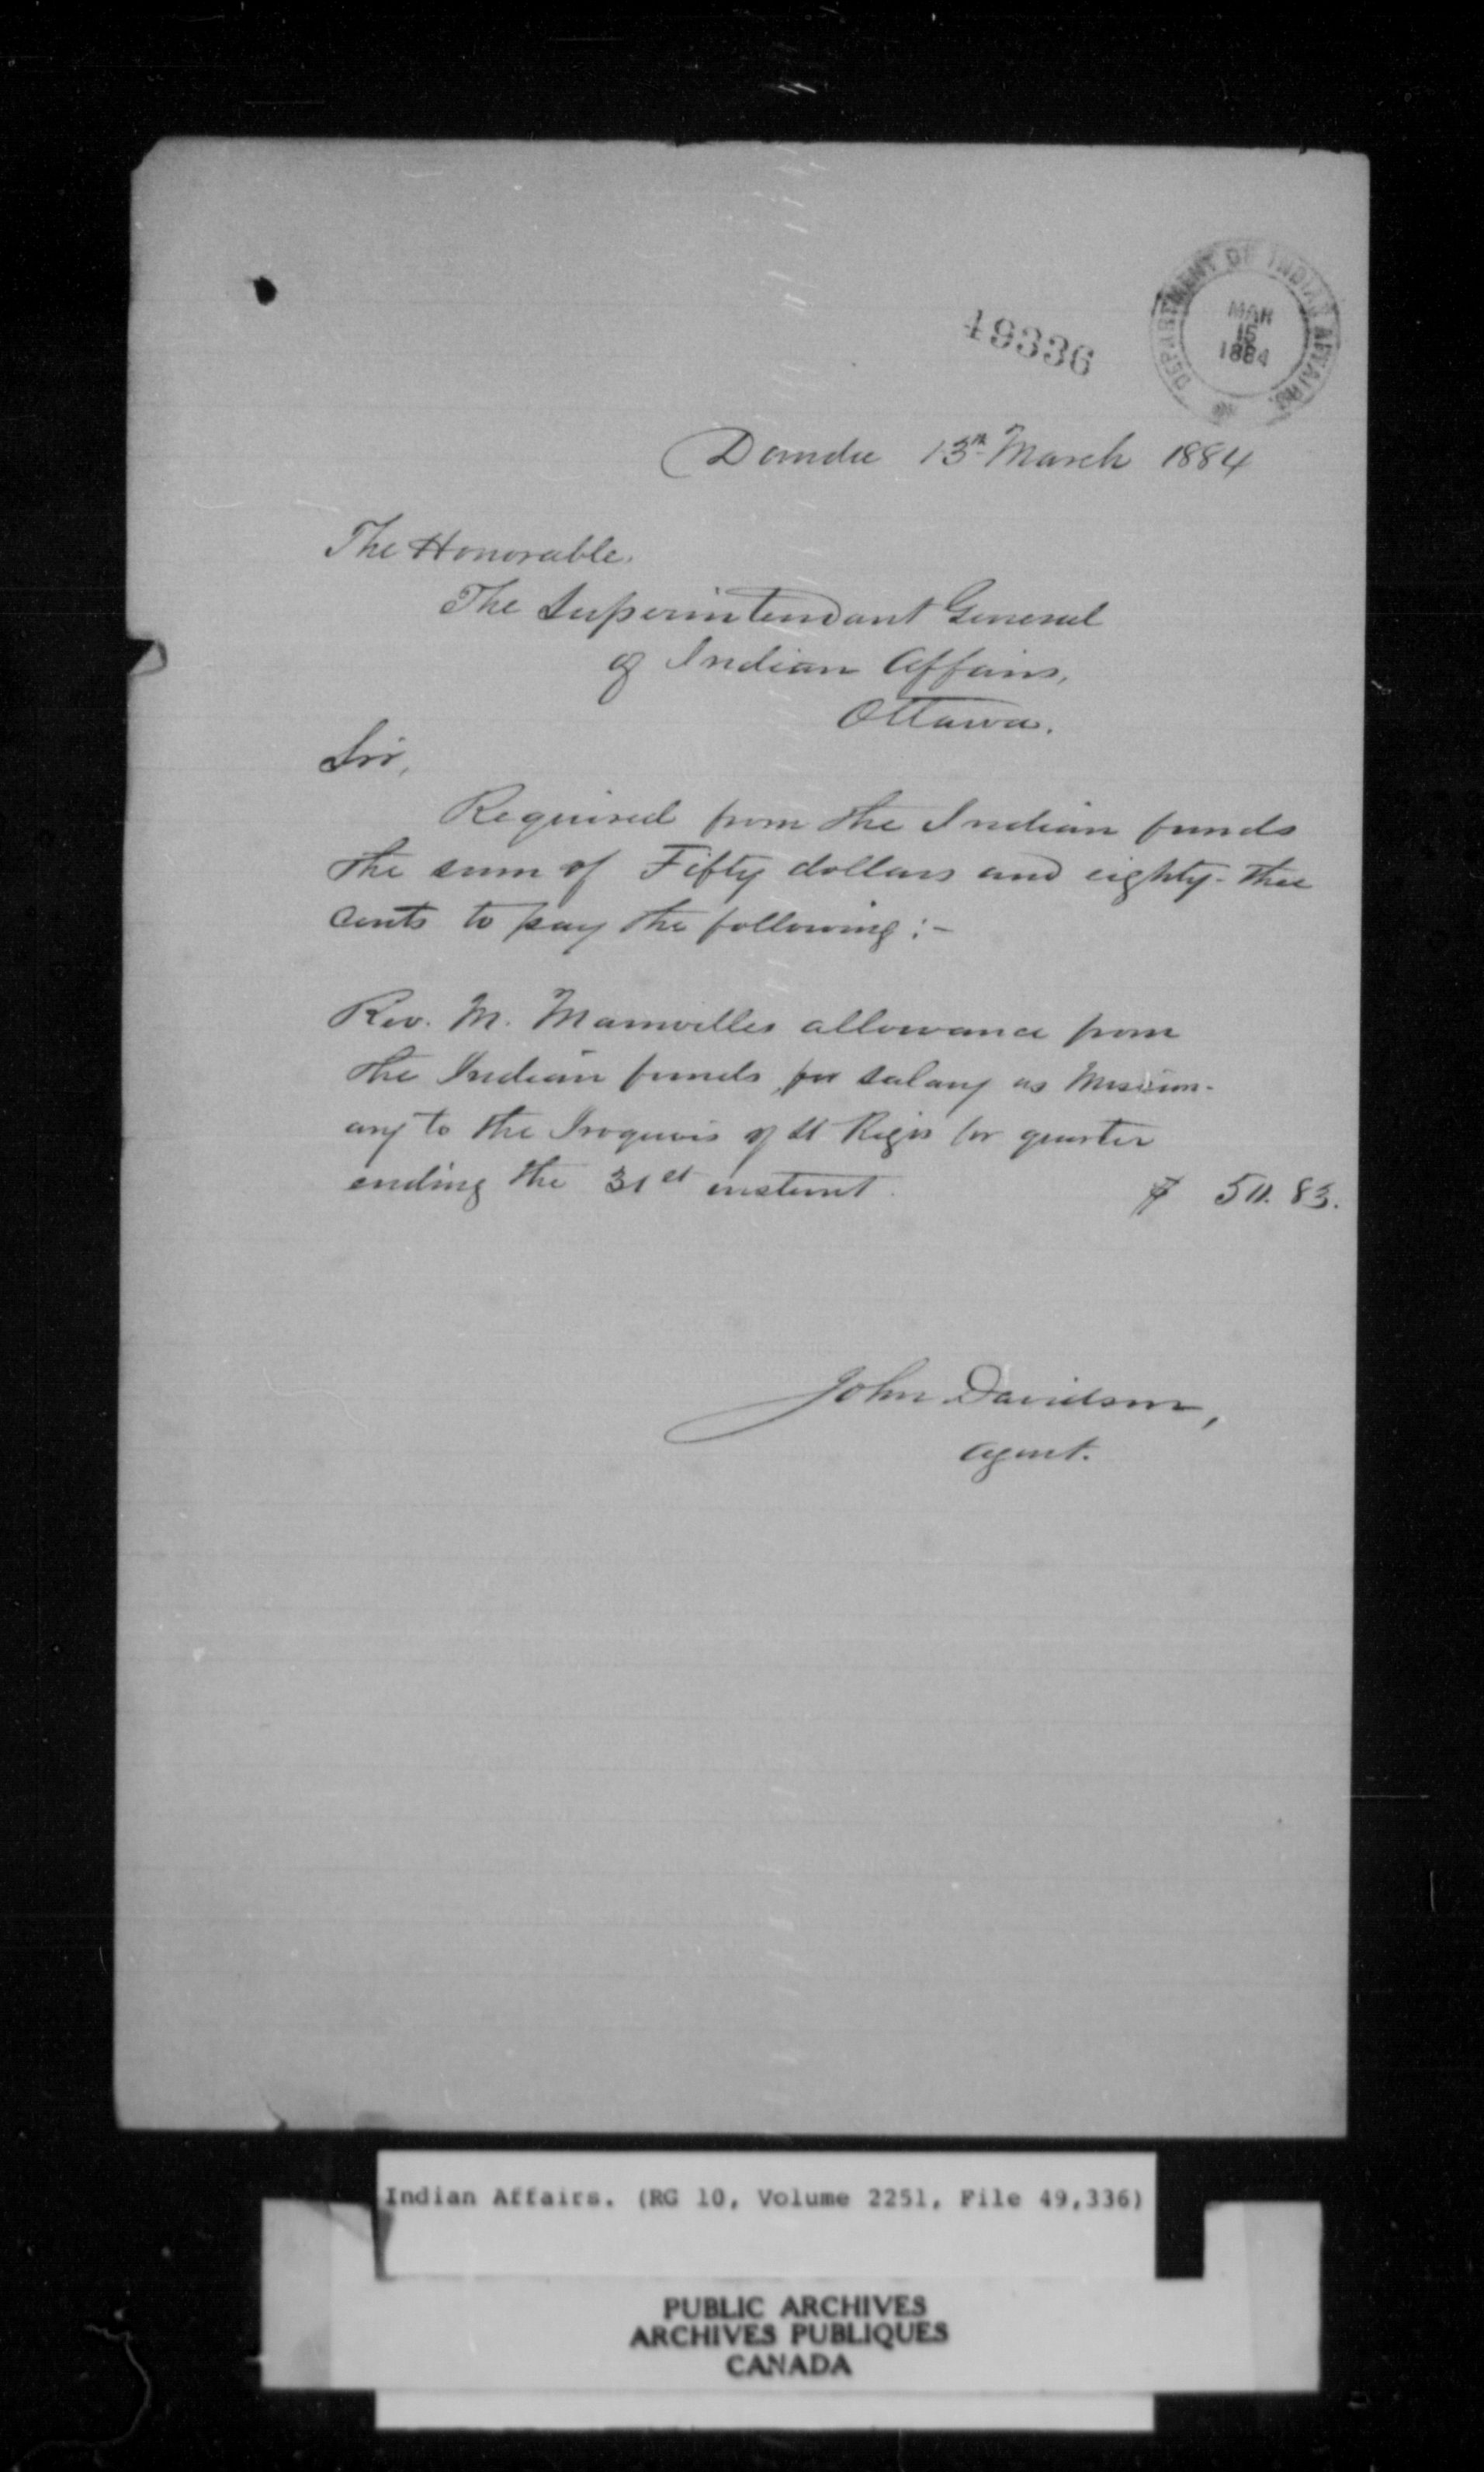 49336
DEPARTMENT OF INDIAN AFFAIRS.
MAR
15
1884
Dundee 13th March 1884
The Honorable.
The Superintendant General
of Indian Affairs,
Ottawa.
Sir,
Required from the Indian funds
the sum of Fifty dollars and eighty-three
cents to pay the following:-
Rev. M. Mainville's allowance from
the Indian funds, for salary as Mission-
ary to the Iroquois of St Regis for quarter
ending the 31st instant. $ 50.83.
John Davidson,
Agent.
Indian Affairs. (RG 10, Volume 2251, File 49,336)
PUBLIC ARCHIVES
ARCHIVES PUBLIQUES
CANADA